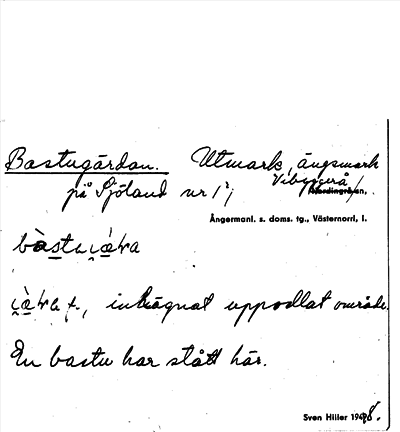 Bastugärdan. Utmark, ängsmark
på Sjöland nr 1²; Vibyggerå /
Ångermanl. s. doms. tg., Västernorrl. l.
inhägnat uppodlat område.
En bastu har stått här.
Sven Hiller 1948.